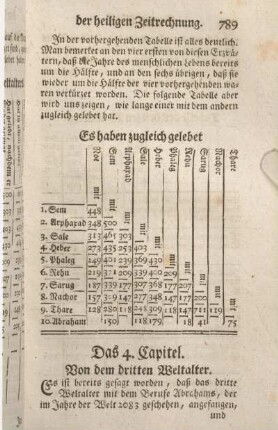 der heiligen Zeitrechnung. 789
In der vorhergehenden Tabelle ist alles deutlich.
Man bemerket an den vier ersten von diesen Erzvä-
tern, daß die Jahre des menschlichen Lebens bereits
um die Hälfte, und an den sechs übrigen, daß sie
wieder um die Hälfte der vier vorhergehenden wä-
ren verkürzet worden. Die folgende Tabelle aber
wird uns zeigen, wie lange einer mit dem andern
zugleich gelebet hat.
Es haben zugleich gelebet
Noe mit Sem mit Arphaxad mit Sale mit Heber mit Phaleg mit Rehu mit Sarug mit Nachor mit Thare
1. Sem 448
2. Arphaxad 348 500
3. Sale 313 465 303
4. Heber 273 435 253 403
5. Phaleg 149 401 239 369 430
6. Rehu 219 371 209 339 400 209
7. Sarug 187 339 177 307 368 177 207
8. Nachor 157 319 147 277 348 147 177 200
9. Thare 128 280 118 241 309 118 147 711 119
10. Abraham 150 118 179 18 41 75
Das 4. Capitel.
Von dem dritten Weltalter.
Es ist bereits gesagt worden, daß das dritte
Weltalter mit dem Berufe Abrahams, der
im Jahre der Welt 2083 geschehen, angefangen,
und